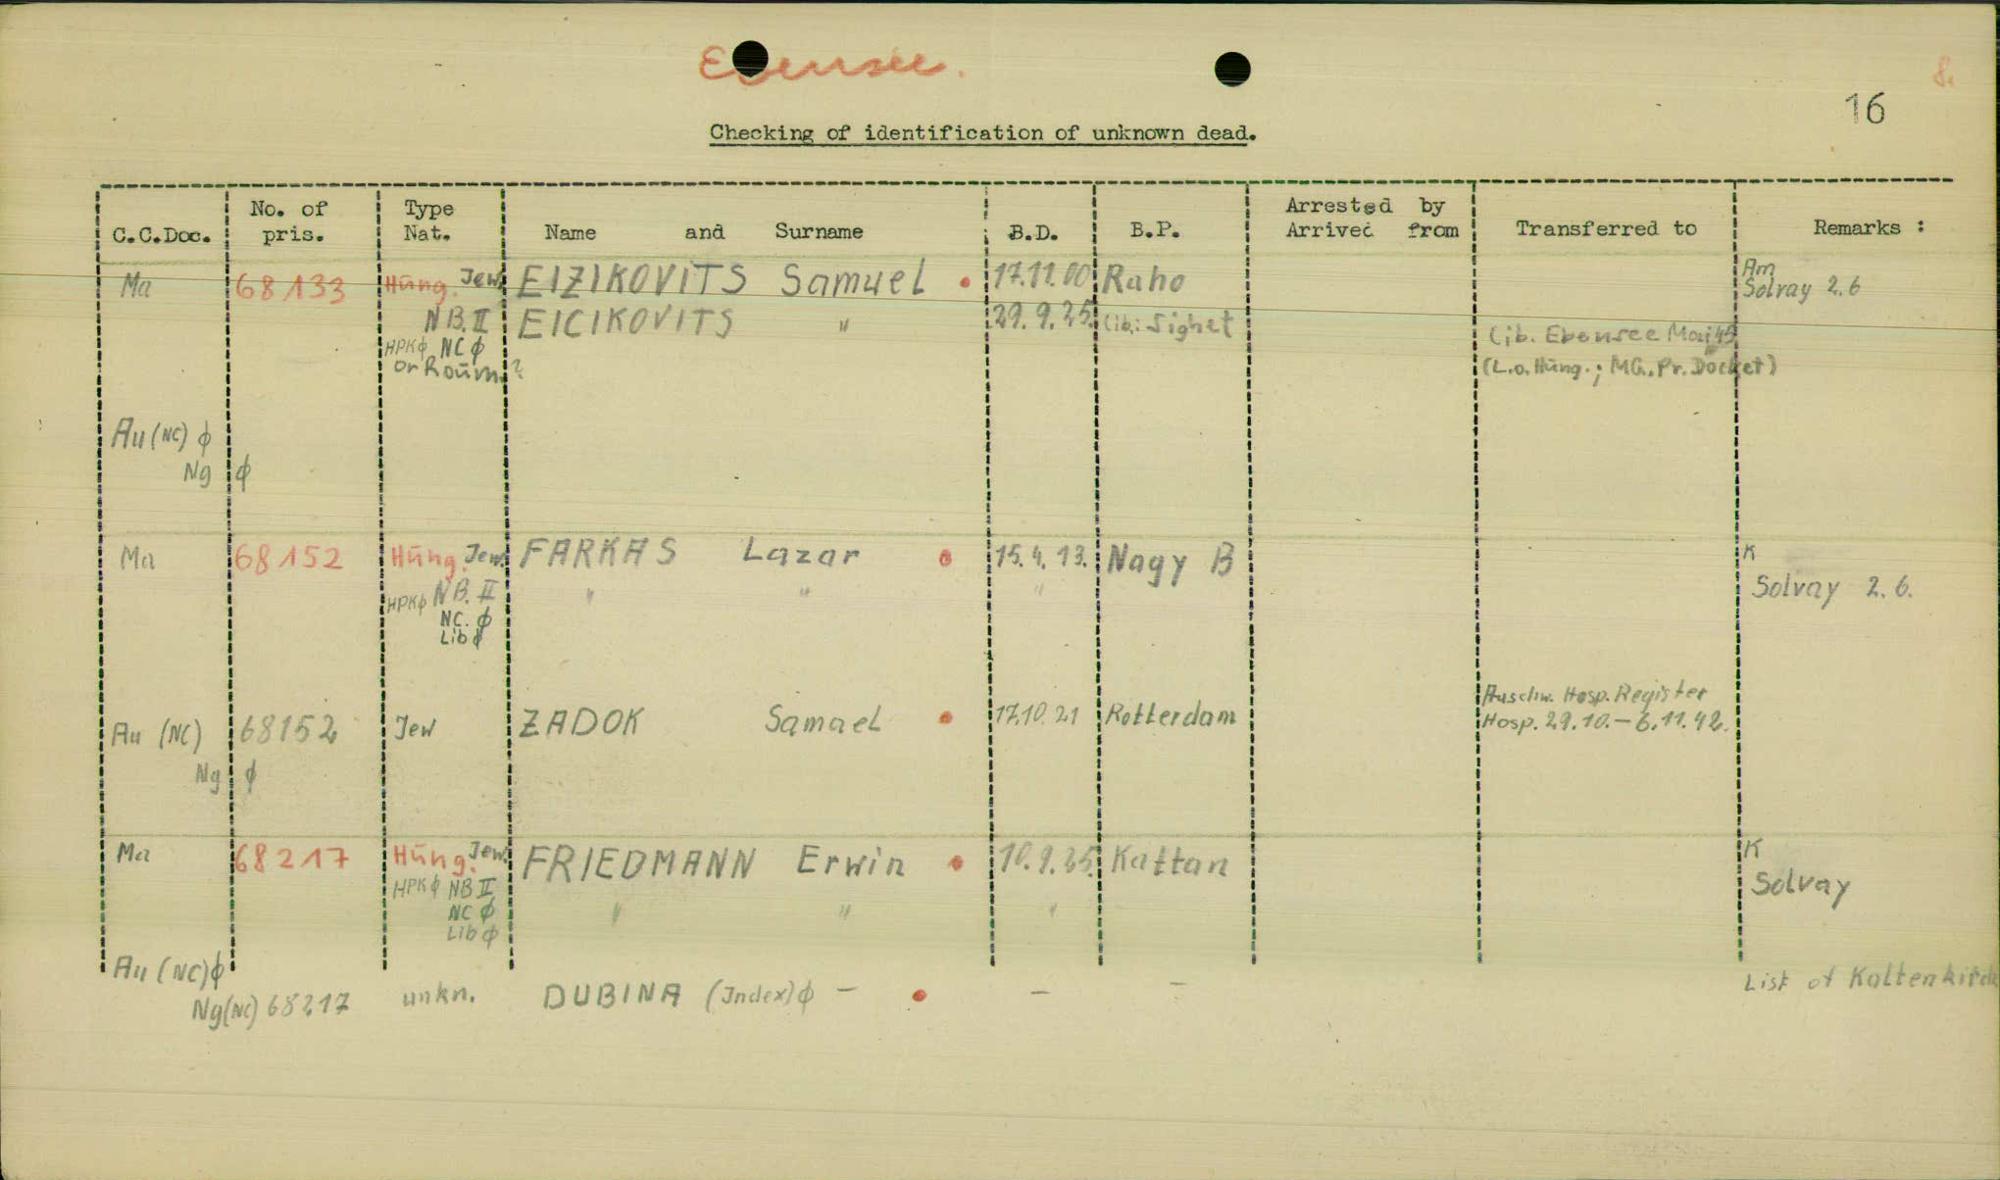 Ebensee.
8.
16
Checking of identification of unknown dead.
C.C.Doc. No. of pris. Type Nat. Name and Surname B.D. B.P. Arrested by Arrived from Transferred to Remarks :
Ma 68133 Hung. Jew. EIZIKOVITS Samuel 17.11.00 Raho Am
Solvay 2.6
NB.II EICIKOVITS " 29.9.25. Lib: Sighet Lib. Ebensee Mai 45
HPKϕ NC ϕ (L.o. Hung.; MG. Pr. Docket)
or Roum.?
Au (NC) ϕ
Ng ϕ
Ma 68152 Hung. Jew. FARKAS Lazar 15.4.13. Nagy B K
HPKϕ NB.II " " " Solvay 2.6.
NC. ϕ
Lib ϕ
Au (NC) 68152 Jew ZADOK Samuel 17.10.21 Rotterdam Auschw. Hosp. Register
Hosp. 29.10.-6.11.42.
Ng ϕ
Ma 68217 Hung. Jew. FRIEDMANN Erwin 10.9.25. Kattan K
HPKϕ NB II Solvay
NC ϕ " " "
Lib ϕ
Au (NC) ϕ List of Kaltenkirch
Ng (NC) 68217 unkn. DUBINA (Index) ϕ - - -